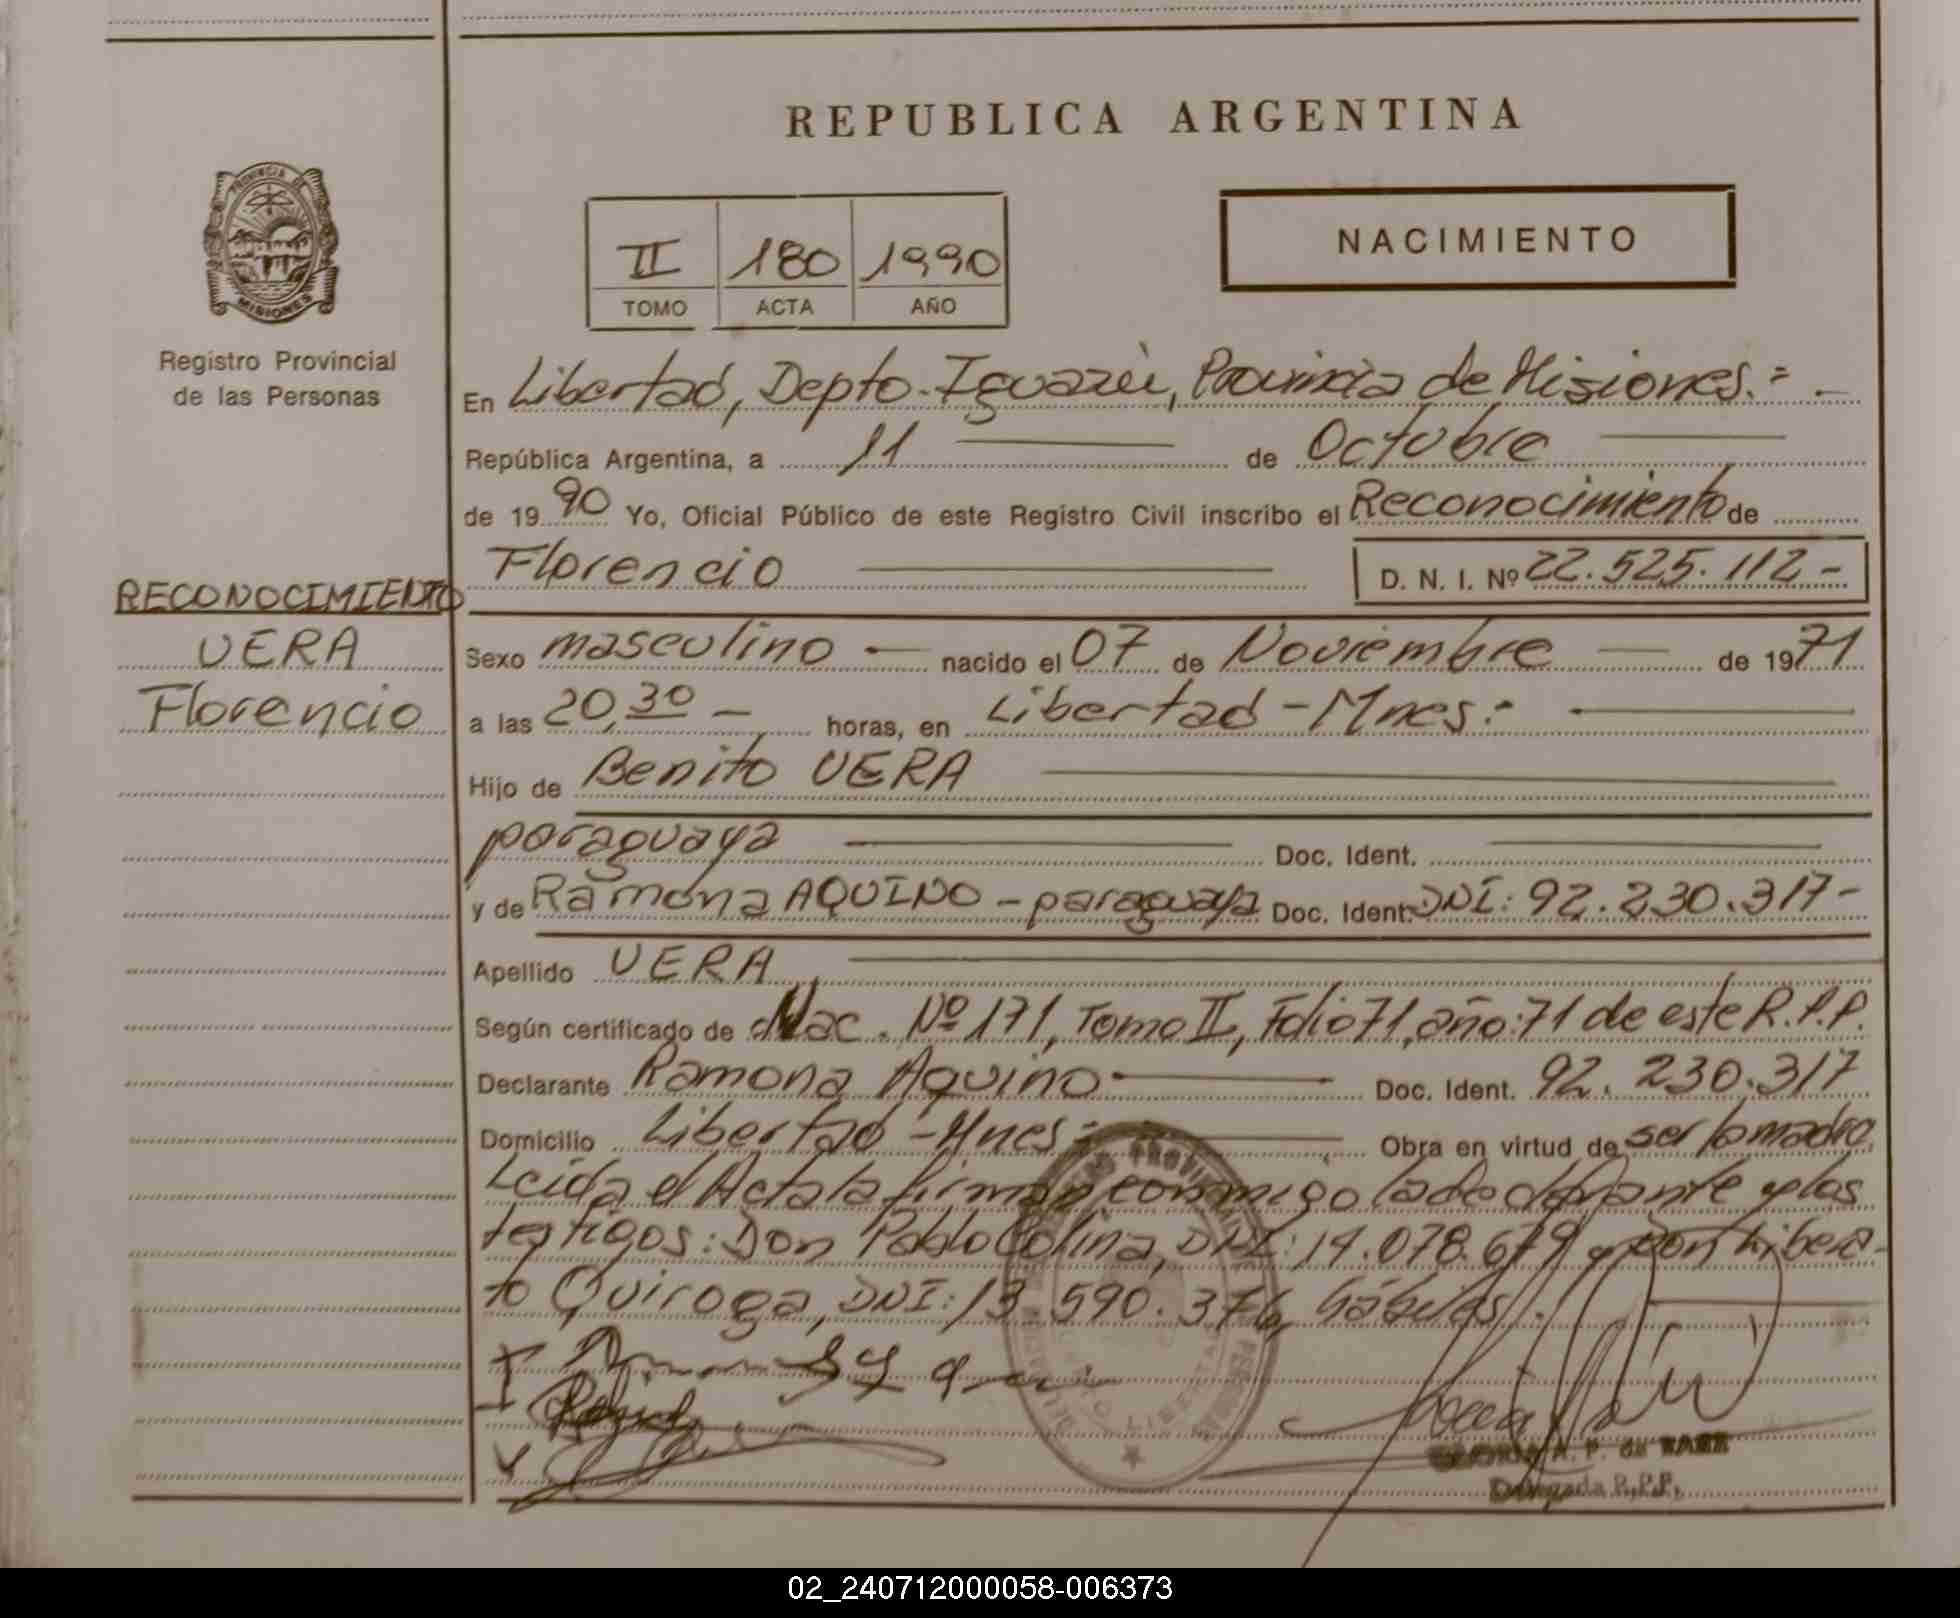 REPUBLICA ARGENTINA
PROVINCIA DE
MISIONES
Registro Provincial
de las Personas
II 180 1990
TOMO ACTA AÑO
NACIMIENTO
En Libertad, Depto. Iguazú, Provincia de Misiones.=
República Argentina, a 11 de Octubre
de 1990 Yo, Oficial Público de este Registro Civil inscribo el Reconocimiento de
Florencio D. N. I. Nº 22.525.112-
RECONOCIMIENTO
VERA
Florencio
Sexo masculino — nacido el 07 de Noviembre — de 1971
a las 20,30 — horas, en Libertad - Mnes.-
Hijo de Benito VERA
paraguaya Doc. Ident.
y de Ramona AQUINO - paraguaya Doc. Ident. DNI: 92.230.317-
Apellido VERA
Según certificado de Nac. Nº 171, Tomo II, Folio 71, año: 71 de este R.P.P.
Declarante Ramona Aquino Doc. Ident. 92.230.317
Domicilio Libertad - Mnes.- Obra en virtud de ser la madre.
Leida el Acta la firman conmigo la declarante y los
testigos: Don Pablo Colina, DNI: 14.078.679 y Don Libera-
to Quiroga, DNI: 13.590.376, hábiles.
A. P. de
Delegada R.P.P.
02_240712000058-006373